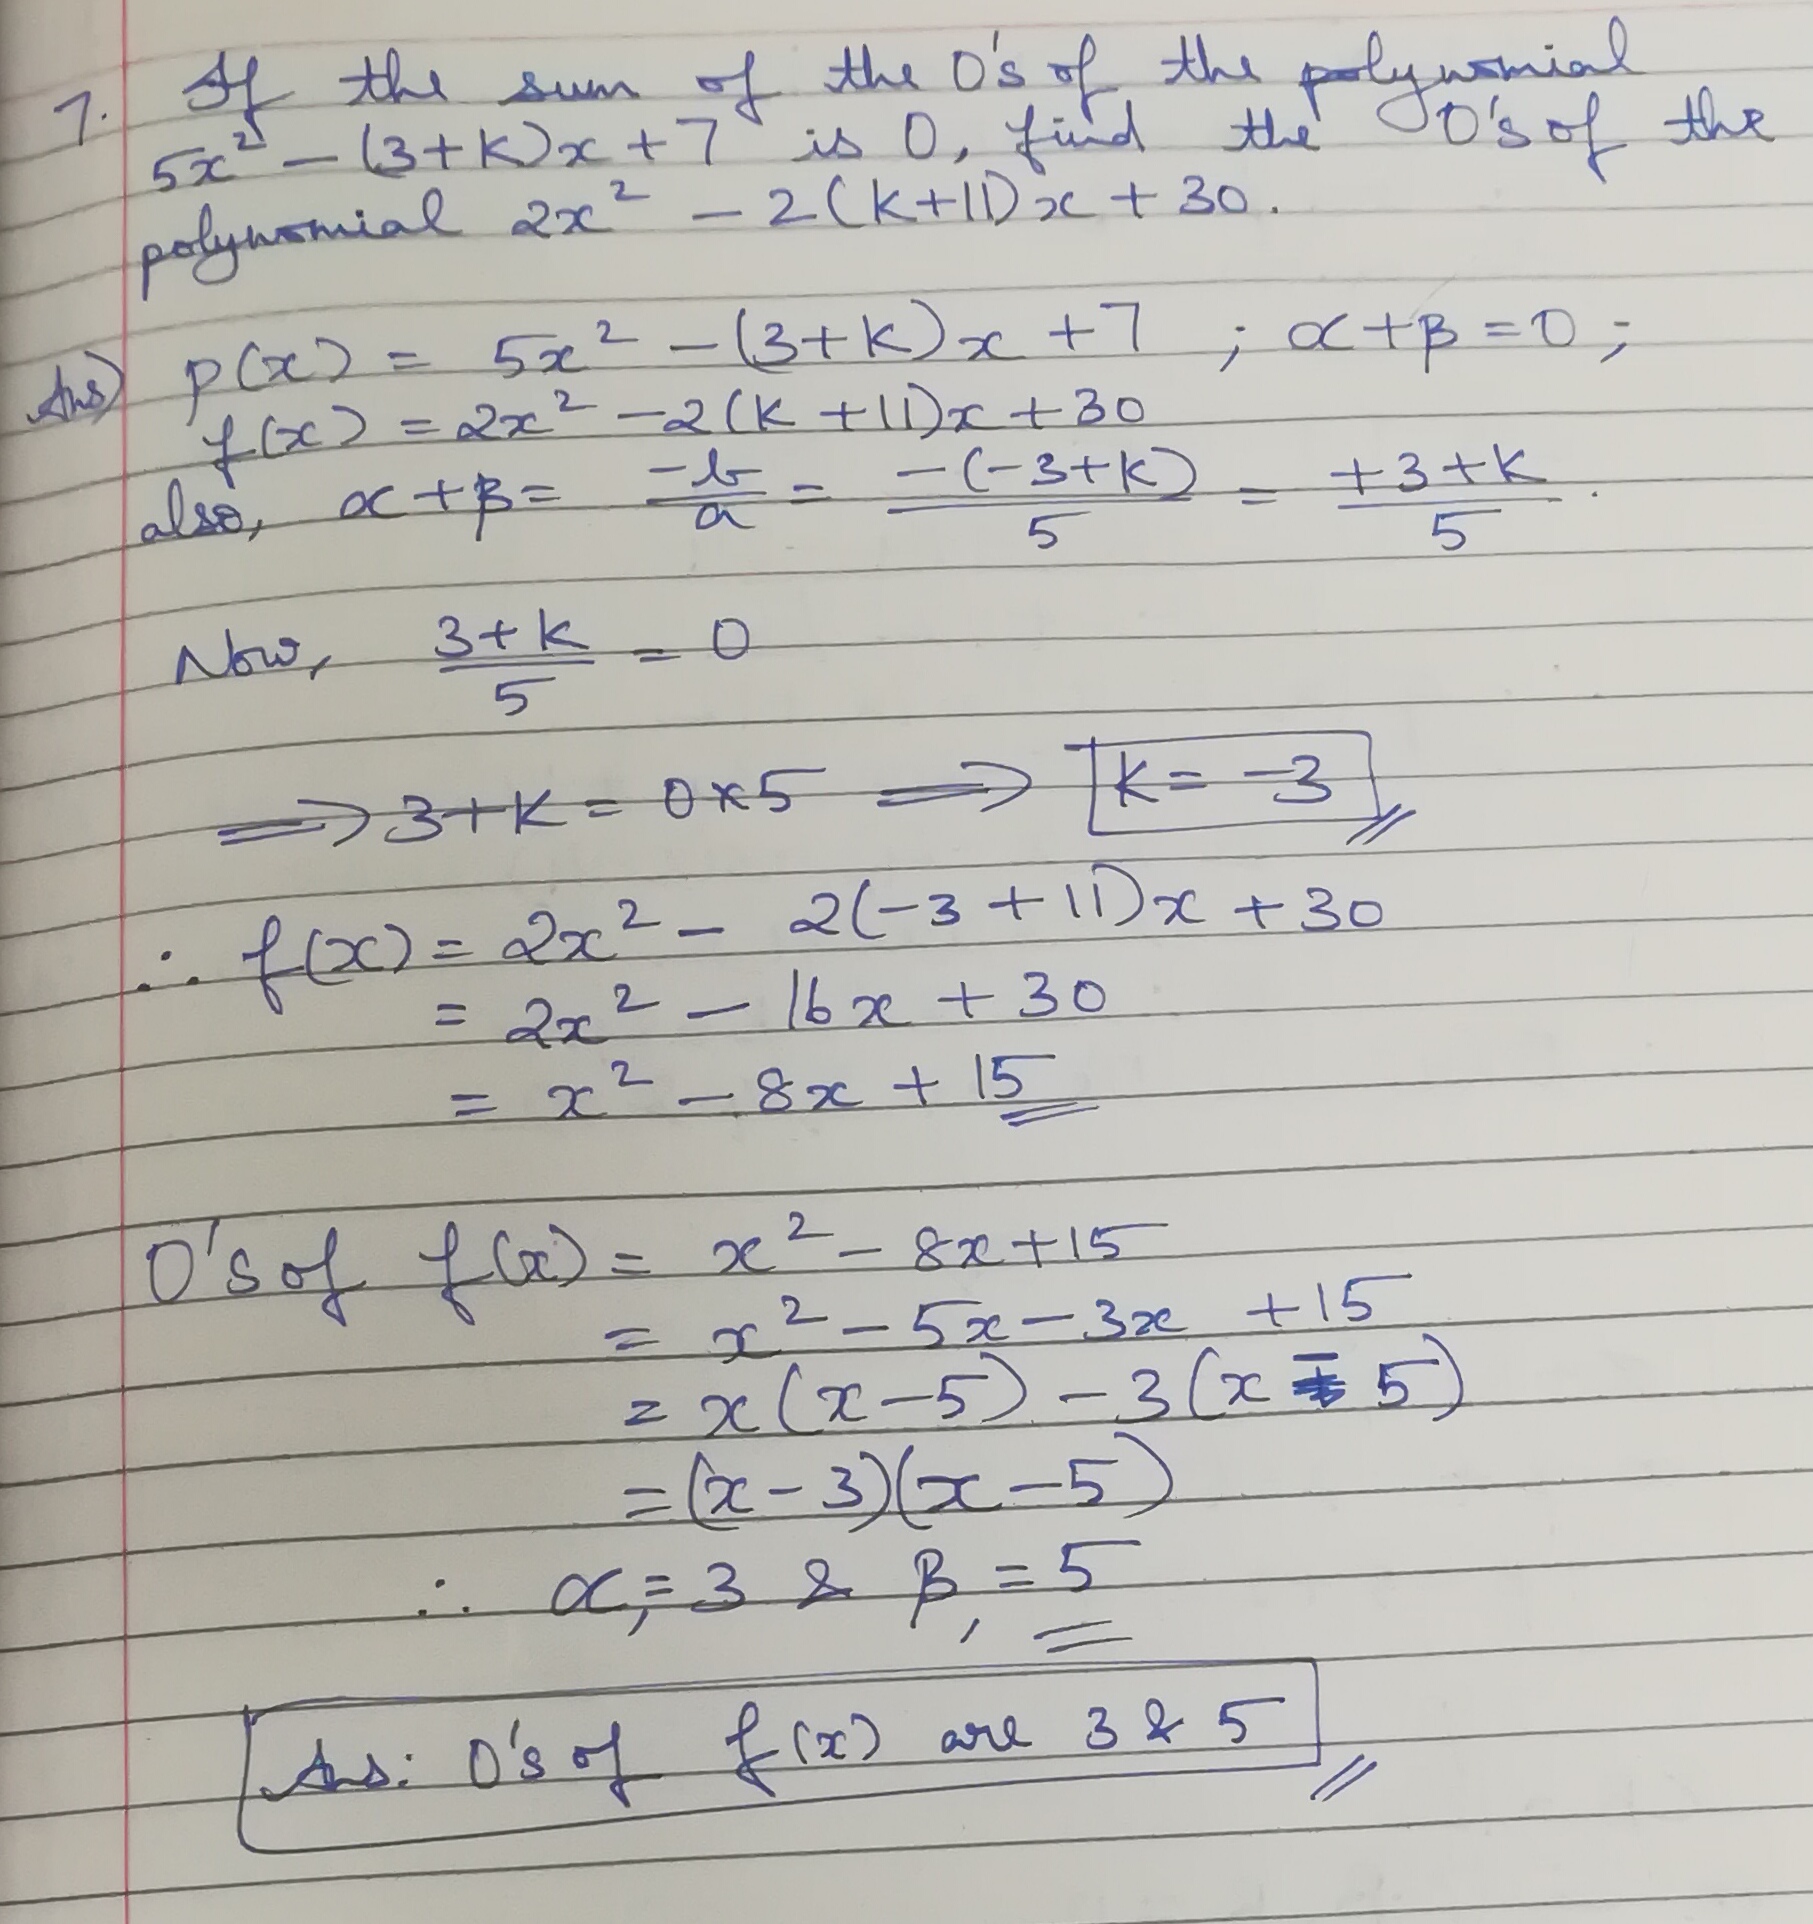 7. If the sum of the 0's of the polynomial
5x² - (3+k)x + 7 is 0, find the 0's of the
polynomial 2x² - 2(k+11)x + 30.
Ans) p(x) = 5x² - (3+k)x + 7 ; α+β = 0 ;
f(x) = 2x² - 2(k+11)x + 30
also, α+β = -b/a = -(-3+k)/5 = +3+k/5.
Now, 3+k/5 = 0
⟹ 3+k = 0×5 ⟹ k = -3
∴ f(x) = 2x² - 2(-3+11)x + 30
= 2x² - 16x + 30
= x² - 8x + 15
0's of f(x) = x² - 8x + 15
= x² - 5x - 3x + 15
= x(x-5) - 3(x - 5)
= (x-3)(x-5)
∴ α, = 3 & β, = 5
Ans: 0's of f(x) are 3 & 5